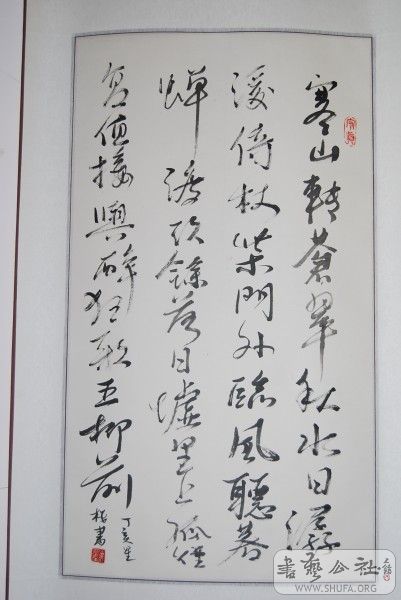 寒山轉蒼翠秋水日潺
湲倚杖柴門外臨風聽暮
蟬渡頭餘落日墟里上孤煙
復值接輿醉狂歌五柳前
丁亥
書
書藝公社
WWW.SHUFA.ORG